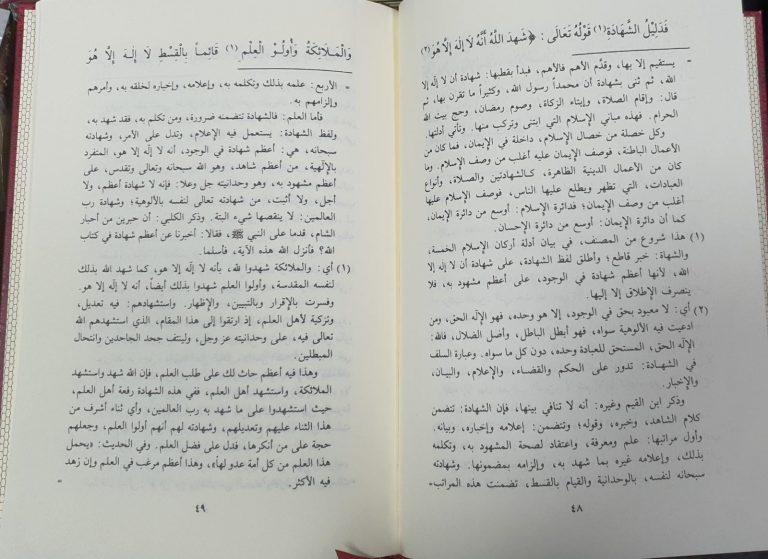 فَدَلِيْلُ الشَّهَادَةِ (١) قَوْلُهُ تَعَالَى : ﴿شَهِدَ اللهُ أَنَّهُ لَا إِلَهَ إِلَّا هُوَ (٢)
= يستقيم إلا بها، وقدَّم الأهم فالأهم، فبدأ بقطبها: شهادة أن لا إله إلا
الله، ثم ثنى بشهادة أن محمداً رسول الله، وكثيراً ما تقرن بها، ثم
قال: وإقام الصلاة، وإيتاء الزكاة، وصوم رمضان، وحج بيت الله
الحرام. فهذه مباني الإسلام التي ابتنى وتركب منها. وتأتي أدلتها.
وكل خصلة من خصال الإسلام، داخلة في الإيمان، فما كان من
الأعمال الباطنة، فوصف الإيمان عليه أغلب من وصف الإسلام. وما
كان من الأعمال الدينية الظاهرة، كالشهادتين والصلاة، وأنواع
العبادات، التي تظهر ويطلع عليها الناس، فوصف الإسلام عليها
أغلب من وصف الإيمان؛ فدائرة الإسلام: أوسع من دائرة الإيمان،
كما أن دائرة الإيمان: أوسع من دائرة الإحسان.
(١) هذا شروع من المصنف، في بيان أدلة أركان الإسلام الخمسة،
والشهادة: خبر قاطع؛ وأطلق لفظ الشهادة، على شهادة أن لا إله إلا
الله، لأنها أعظم شهادة في الوجود، على أعظم مشهود به، فلا
ينصرف الإطلاق إلا إليها.
(٢) أي: لا معبود بحق في الوجود، إلا هو وحده، فهو الإله الحق، ومن
ادعيت فيه الألوهية سواه، فهو أبطل الباطل، وأضل الضلال، فالله:
الإله الحق، المستحق للعبادة وحده، دون كل ما سواه. وعبارة السلف
في الشهادة: تدور على الحكم والقضاء، والإعلام، والبيان،
والإخبار.
وذكر ابن القيم وغيره: أنه لا تنافي بينها، فإن الشهادة: تتضمن
كلام الشاهد، وخبره، وقوله؛ وتتضمن: إعلامه وإخباره، وبيانه.
وأول مراتبها: علم ومعرفة، واعتقاد لصحة المشهود به، وتكلمه
بذلك، وإعلامه غيره بما شهد به، وإلزامه بمضمونها. وشهادته
سبحانه لنفسه، بالوحدانية والقيام بالقسط، تضمنت هذه المراتب=
٤٨
وَالْمَلَائِكَةُ وَأُولُو الْعِلْمِ (١) قَائِماً بِالْقِسْطِ لَا إِلَهَ إِلَّا هُوَ
= الأربع: علمه بذلك وتكلمه به، وإعلامه، وإخباره لخلقه به، وأمرهم
وإلزامهم به.
فأما العلم: فالشهادة تتضمنه ضرورة، ومن تكلم به، فقد شهد به،
ولفظ الشهادة: يستعمل فيه الإعلام، وتدل على الأمر، وشهادته
سبحانه، هي: أعظم شهادة في الوجود، أنه لا إله إلا هو، المتفرد
بالإلهية، من أعظم شاهد، وهو الله سبحانه وتعالى وتقدس، على
أعظم مشهود به، وهو وحدانيته جل وعلا: فإنه لا شهادة أعظم، ولا
أجل، ولا أثبت، من شهادته تعالى لنفسه بالألوهية؛ وشهادة رب
العالمين: لا ينقصها شيء البتة. وذكر الكلبي: أن حبرين من أحبار
الشام، قدما على النبي ﷺ، فقالا: أخبرنا عن أعظم شهادة في كتاب
الله؟ فأنزل الله هذه الآية، فأسلما.
(١) أي: والملائكة شهدوا لله، بأنه لا إله إلا هو، كما شهد الله بذلك
لنفسه المقدسة، وأولوا العلم شهدوا بذلك أيضاً، أنه لا إله إلا هو.
وفسرت بالإقرار وبالتبيين، والإظهار. واستشهادهم: فيه تعديل،
وتزكية لأهل العلم، إذ ارتقوا إلى هذا المقام، الذي استشهدهم الله
تعالى فيه، على وحدانيته عز وجل، ولينتف جحد الجاحدين وانتحال
المبطلين.
وهذا فيه أعظم حاث لك على طلب العلم، فإن الله شهد واستشهد
الملائكة، واستشهد أهل العلم، ففي هذه الشهادة رفعة أهل العلم،
حيث استشهدوا على ما شهد به رب العالمين، وأي ثناء أشرف من
هذا الثناء عليهم وتعديلهم، وشهادته لهم أنهم أولوا العلم، وجعلهم
حجة على من أنكرها، فدل على فضل العلم. وفي الحديث: «يحمل
هذا العلم من كل أمة عدولها»، وهذا أعظم مرغب في العلم وإن زهد
فيه الأكثر. =
٤٩